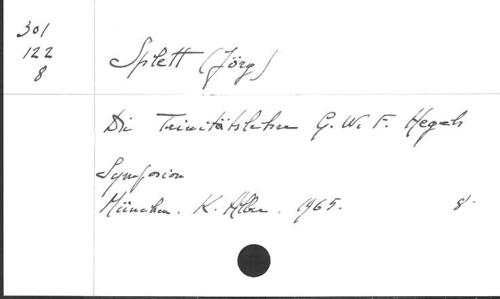 301
122
8
Splett (Jörg)
Die Trinitätslehre G. W. F. Hegels
Symposion
München. K. Alber. 1965. 8.